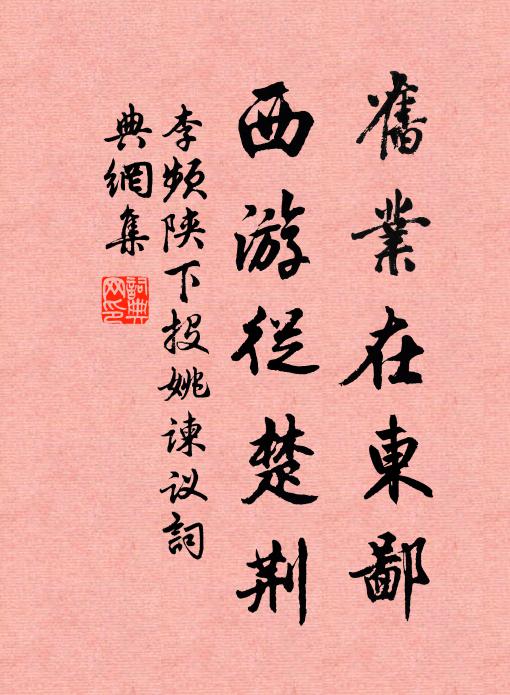 舊業在東鄙
西游從楚荆
李頻陝下投姚諫议詞
典網集
詞典网印